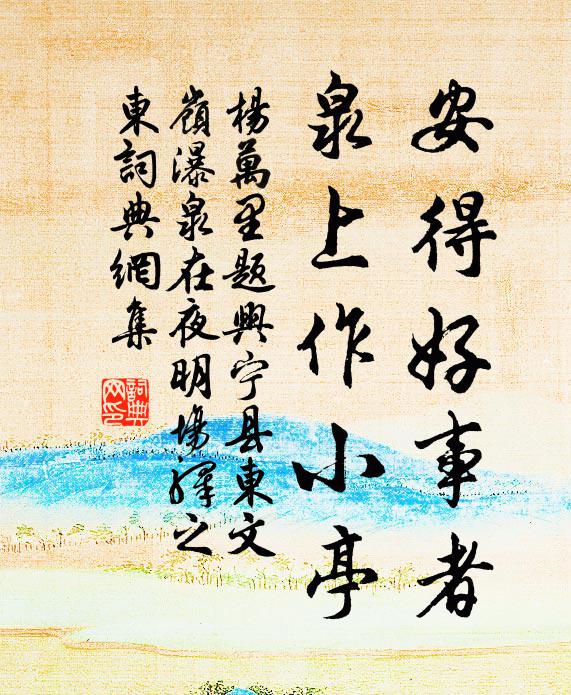 安得好事者
泉上作小亭
楊萬里題興宁县東文
嶺瀑泉在夜明場驛之
東詞典網集
詞典网印